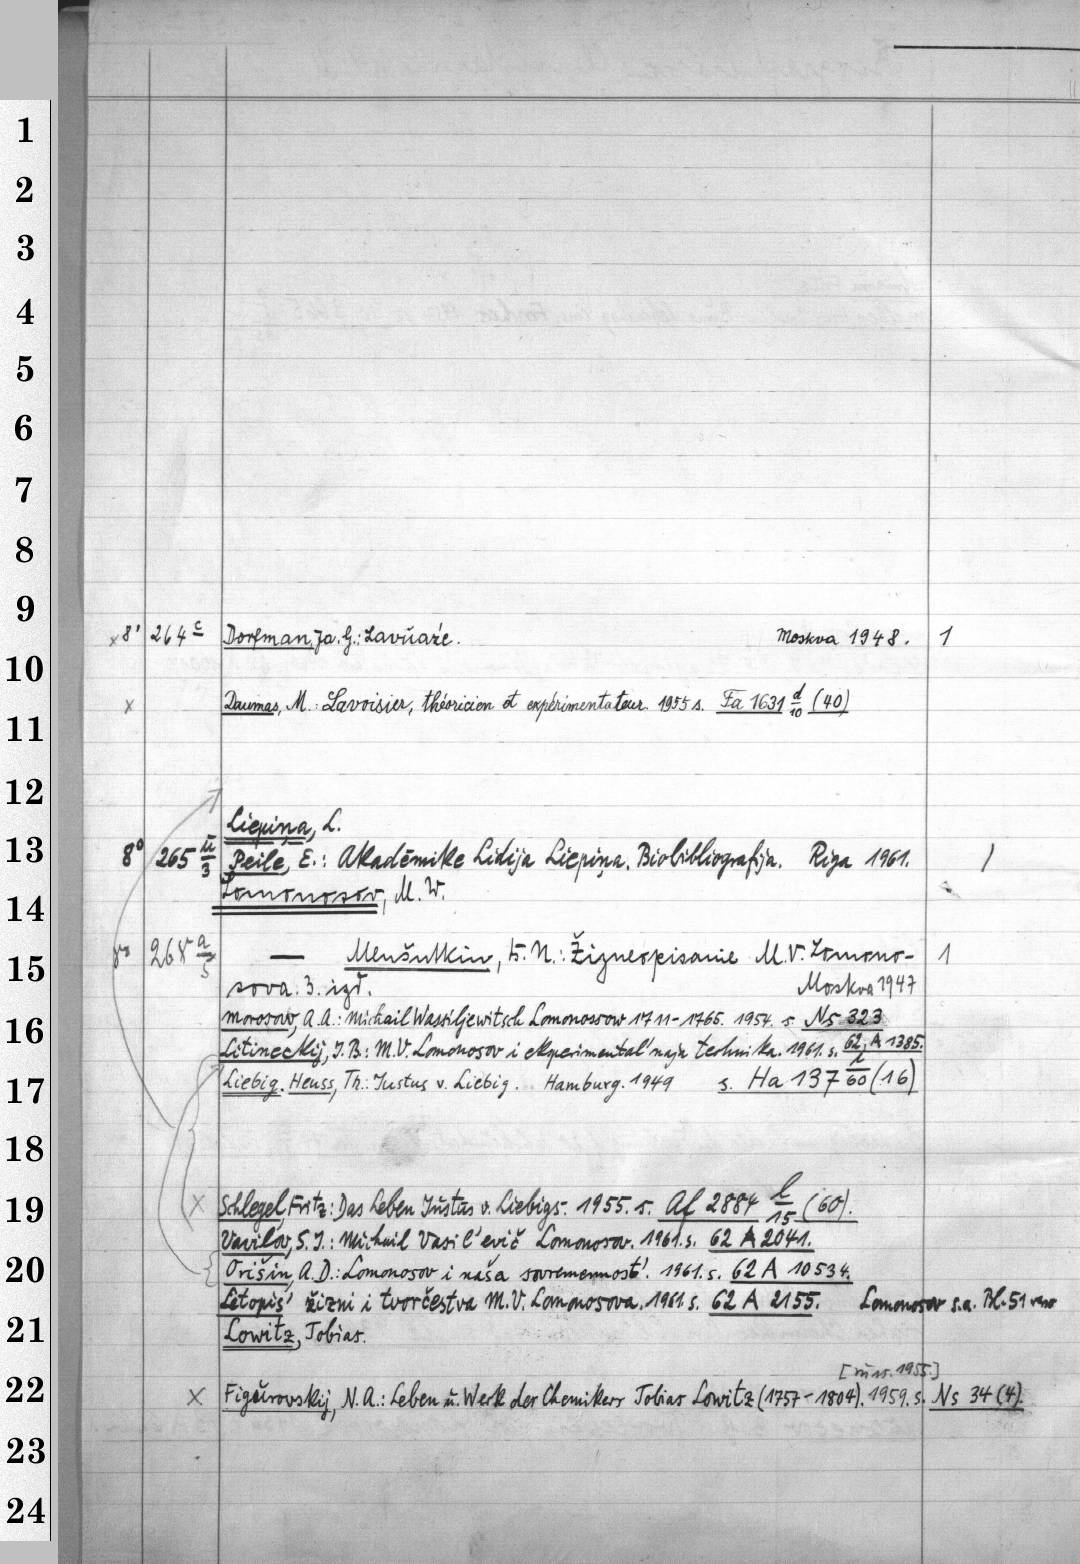 1
2
3
4
5
6
7
8
9
x 8° 264 c Dorfman, Ja. G.: Lavuaz'e. Moskva 1948. 1
10
x Daumas, M.: Lavoisier, théoricien et expérimentateur. 1955 s. Fa 1631 d/10 (40)
11
12
Liepiņa, L.
13
8° 265 u/3 Peile, E.: Akadēmiķe Lidija Liepiņa. Biobibliografija. Riga 1961. 1
Lomonosov, M. W.
14
8° 268 a/5 — Menšutkin, B. N.: Žizneopisanie M. V. Lomono- 1
15
sova. 3. izd. Moskva 1947
Morosow, A. A.: Michail Wassiljewitsch Lomonossow 1711-1765. 1954. s. Ns 323
16
Litineckij, I. B.: M. V. Lomonosov i eksperimental'naja technika. 1961. s. 62 A 1385.
Liebig. Heuss, Th.: Justus v. Liebig. Hamburg. 1949 s. Ha 137 l/60 (16)
17
18
x Schlegel, Fritz: Das Leben Justus v. Liebigs. 1955. s. Af 2884 l/15 (60).
19
Vavilov, S. I.: Michail Vasil'evič Lomonosov. 1961. s. 62 A 2041.
20
Orišin, A. D.: Lomonosov i naša sovremennost'. 1961. s. 62 A 10534.
Letopis' žizni i tvorčestva M. V. Lomonosova. 1961. s. 62 A 2155. Lomonosov s. a. Bl. 51 verso
21
Lowitz, Tobias.
[russ. 1955]
22
x Figurovskij, N. A.: Leben u. Werk der Chemikers Tobias Lowitz (1757-1804). 1959. s. Ns 34 (4).
23
24